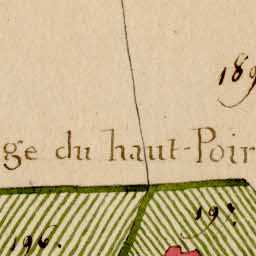 189
ge du haut-Poir
197
196.